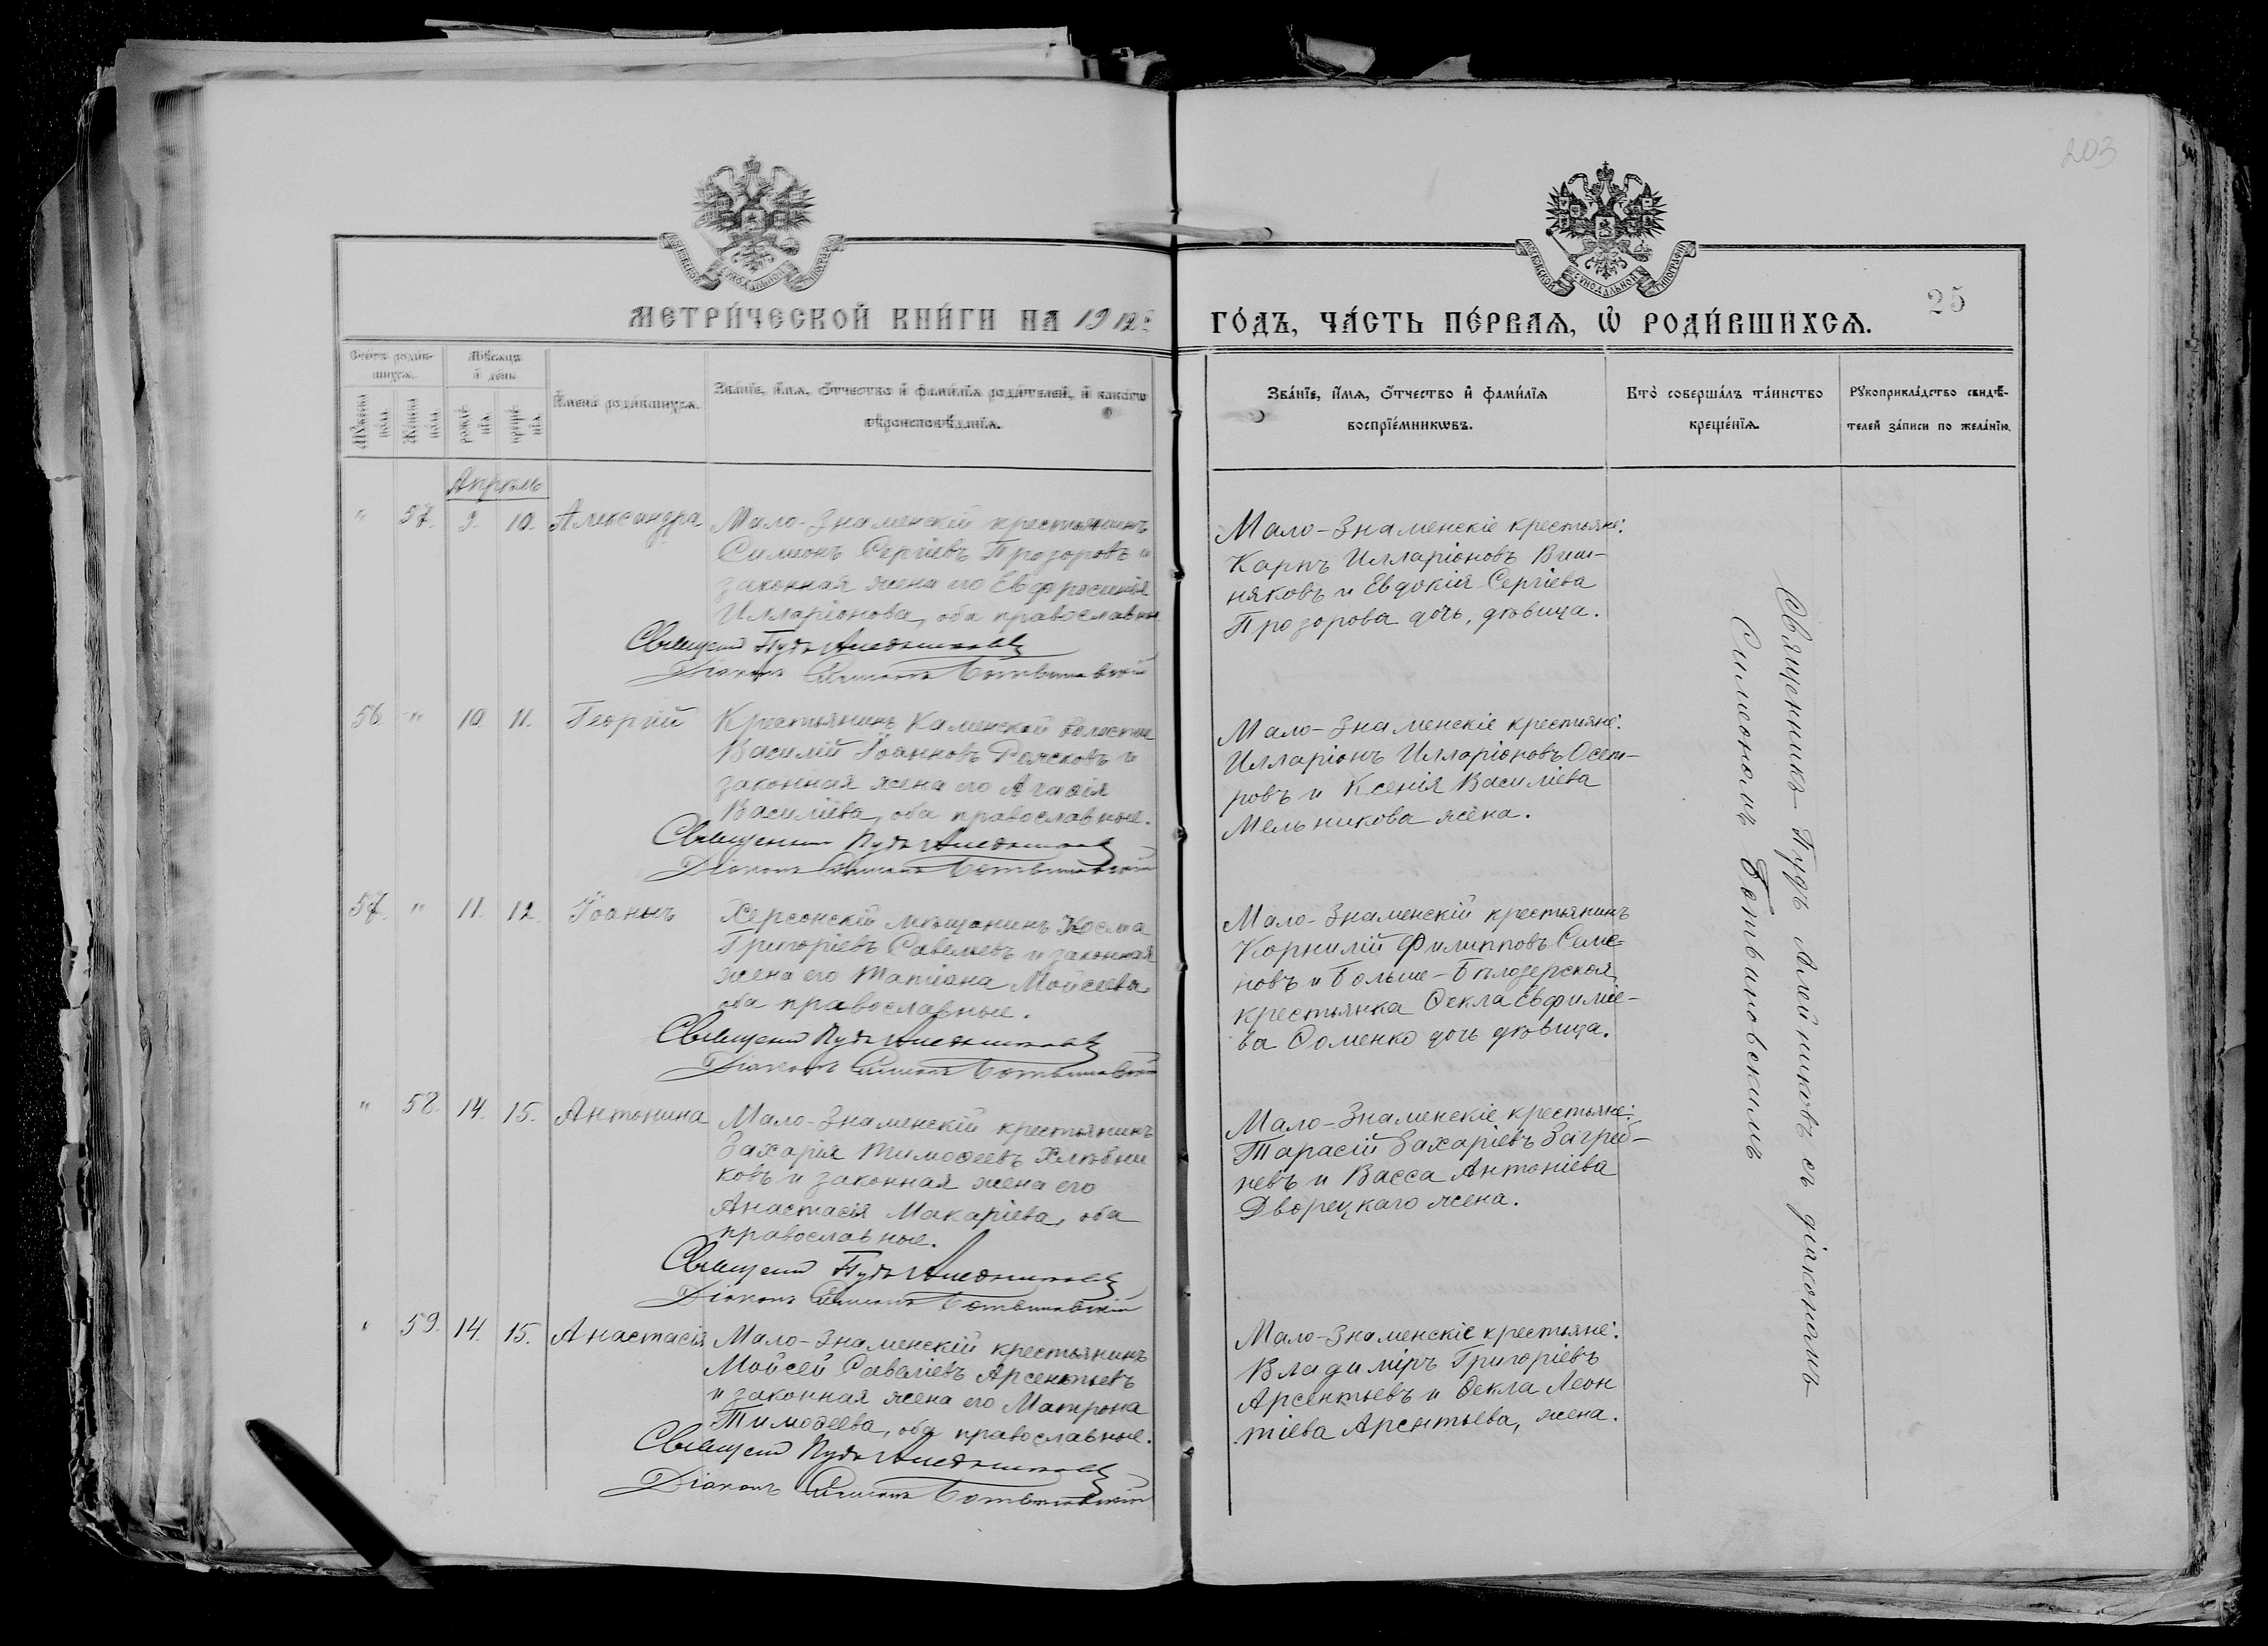 203
МОСКОВСКОЙ СѴНОДАЛЬНОЙ ТИПОГРАФІИ
МОСКОВСКОЙ СѴНОДАЛЬНОЙ ТИПОГРАФІИ
МЕТРИ́ЧЕСКОЙ КНИ́ГИ НА 1912й
ГО́ДЪ, ЧА́СТЬ ПЕ́РВАѦ, Ѡ РОДИ́ВШИХСѦ.
25
Сче́тъ роди́в-
шихсѧ.
Мѣ́сѧцъ
и҆ де́нь
Мꙋ́жеска
по́ла.
Же́нска
по́ла.
рожде́-
нїѧ.
креще́-
нїѧ.
И҆мена̀ роди́вшихсѧ.
Зва́нїе, и҆́мѧ, ѻ҆́тчество и҆ фами́лїѧ роди́телей, и҆ како́гѡ
вѣроисповѣ́данїѧ.
Зва́нїе, и҆́мѧ, ѻ҆́тчество и҆ фами́лїѧ
воспрїе́мникѡвъ.
Кто̀ соверша́лъ та́инство
креще́нїѧ.
Рꙋкоприкла́дство свидѣ́-
телей за́писи по жела́нїю.
Апрѣль
" 57. 9. 10. Александра
Мало-Знаменскій крестьянинъ
Симеонъ Сергіевъ Прозоровъ и
законная жена его Евфросинія
Илларіонова, оба православные
Священ Пудъ Алейниковъ
Діаконъ Симеонъ Ботвиновскій
Мало-Знаменскіе крестьяне:
Карпъ Илларіоновъ Виш-
няковъ и Евдокія Сергіева
Прозорова дочь, дѣвица.
56. " 10. 11. Георгій
Крестьянинъ Каменской волости
Василій Іоанновъ и
законная жена его Агафія
Василіева, оба православные.
Священник Пудъ Алейниковъ
Діаконъ Симеонъ Ботвиновскій
Мало-Знаменскіе крестьяне:
Илларіонъ Илларіоновъ Осет-
ровъ и Ксенія Василіева
Мельникова жена.
57. " 11. 12. Іоаннъ
Херсонскій мѣщанинъ Косма
Григоріевъ Савельевъ и законная
жена его Татіана Мойсеева
оба православные.
Священ Пудъ Алейниковъ
Діаконъ Симеонъ Ботвиновскій
Мало-Знаменскій крестьянинъ
Корнилій Филипповъ Семе-
новъ и Больше-Бѣлозерская
крестьянка Ѳекла Евфиміе-
ва Ѳоменко дочь дѣвица.
" 58. 14. 15. Антонина
Мало-Знаменскій крестьянинъ
Захарія Тимоѳеевъ Хлѣбни
ковъ и законная жена его
Анастасія Макаріева, оба
православные.
Священ Пудъ Алейниковъ
Діаконъ Симеонъ Ботвиновскій
Мало-Знаменскіе крестьяне:
Тарасій Захаріевъ Загреб-
невъ и Васса Антоніева
Дворецкаго жена.
" 59. 14. 15. Анастасія
Мало-Знаменскій крестьянинъ
Мойсей Савеліевъ Арсентьевъ
и законная жена его Матрона
Тимоѳеева, оба православные.
Священ Пудъ Алейниковъ
Діаконъ Симеонъ Ботвиновскій
Мало-Знаменскіе крестьяне:
Владиміръ Григоріевъ
Арсентьевъ и Ѳекла Леон
тіева Арсентьева, жена.
Священникъ Пудъ Алейниковъ съ діакономъ
Симеономъ Ботвиновскимъ